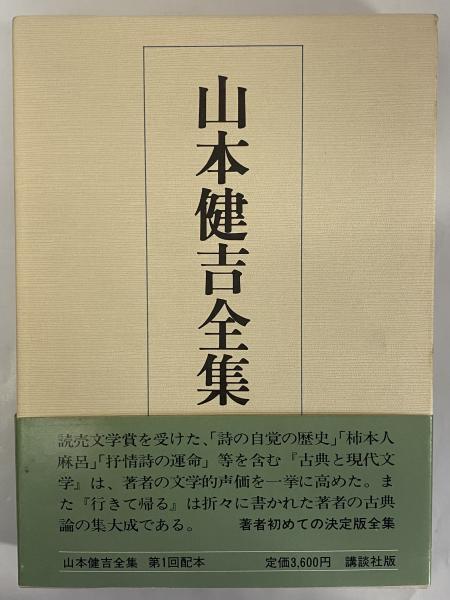 山本健吉全集
読売文学賞を受けた、「詩の自覚の歴史」「柿本人
麻呂」「抒情詩の運命」等を含む『古典と現代文
学』は、著者の文学的声価を一挙に高めた。ま
た『行きて帰る』は折々に書かれた著者の古典
論の集大成である。 著者初めての決定版全集
山本健吉全集 第1回配本 定価3,600円 講談社版